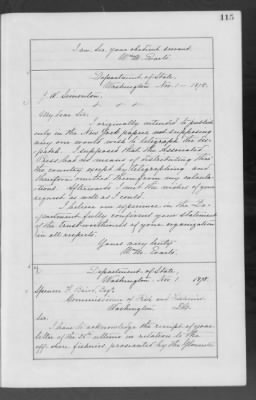 115
I am Sir, your obedient servant
Wm M. Evarts
Department of State,
Washington Nov. 1 – 1878.
J. W. Simonton,
My dear Sir:
I originally intended to publish
only in the New York papers not supposing
any one would wish to telegraph the des-
patch. I supposed that the Associated
Press had no means of distributing thro'
the country except by telegraphing and
therefore omitted them from my calcula-
tions. Afterwards I met the wishes of your
request as well as I could.
I believe our experience in the De-
partment fully confirms your statement
of the trustworthiness of your organization
in all respects.
Yours very truly
Wm M. Evarts.
Department of State,
Washington Nov. 1 1878.
Spencer F. Baird, Esqr.
Commissioner of Fish and Fisheries
Washington D.C.
Sir:
I have to acknowledge the receipt of your
letter of the 25th ultimo in relation to the
off shore fisheries prosecuted by the Gloucester